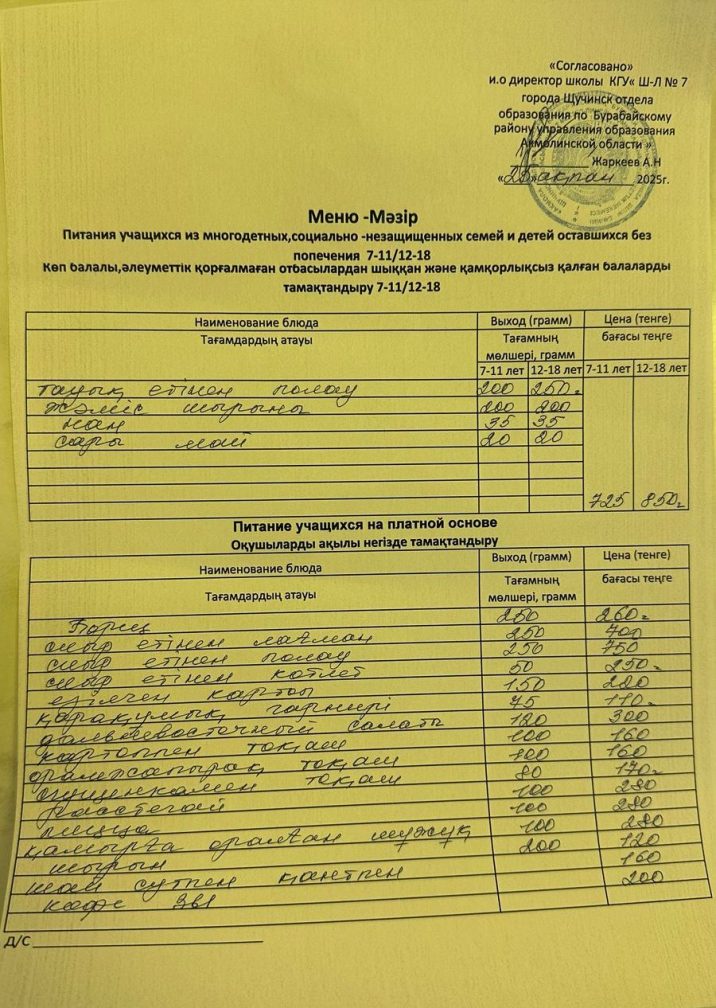 «Согласовано»
и.о директор школы КГУ« Ш-Л № 7
города Щучинск отдела
образования по Бурабайскому
району управления образования
Акмолинской области »
Жаркеев А.Н
«25» ақпан 2025г.
Меню -Мәзір
Питания учащихся из многодетных,социально -незащищенных семей и детей оставшихся без
попечения 7-11/12-18
Көп балалы,әлеуметтік қорғалмаған отбасылардан шыққан және қамқорлықсыз қалған балаларды
тамақтандыру 7-11/12-18
Наименование блюда Выход (грамм) Цена (тенге)
Тағамдардың атауы Тағамның мөлшері, грамм бағасы теңге
7-11 лет 12-18 лет 7-11 лет 12-18 лет
тауық етінен полау 200 250г
жәміс шырыны 200 200
нан 35 35
сары май 20 20
725 850г
Питание учащихся на платной основе
Оқушыларды ақылы негізде тамақтандыру
Наименование блюда Выход (грамм) Цена (тенге)
Тағамдардың атауы Тағамның мөлшері, грамм бағасы теңге
Борщ 250 260г
сиыр етінен лағман 250 700
сиыр етінен полау 250 750
сиыр етінен котлет 50 250г
езілген картоп 150 220
қарақұмық гарнирі 75 110г
дальневосточный салаты 120 300
картоппен тоқаш 100 160
оралжапырақ тоқаш 100 160
сгущенкамен тоқаш 80 170г
Расстегай 100 280
пицца 100 280
қамырға оралған шұжұқ 100 280
шырын 200 120
шай сүтпен қантпен 160
кофе 3в1 200
Д/С